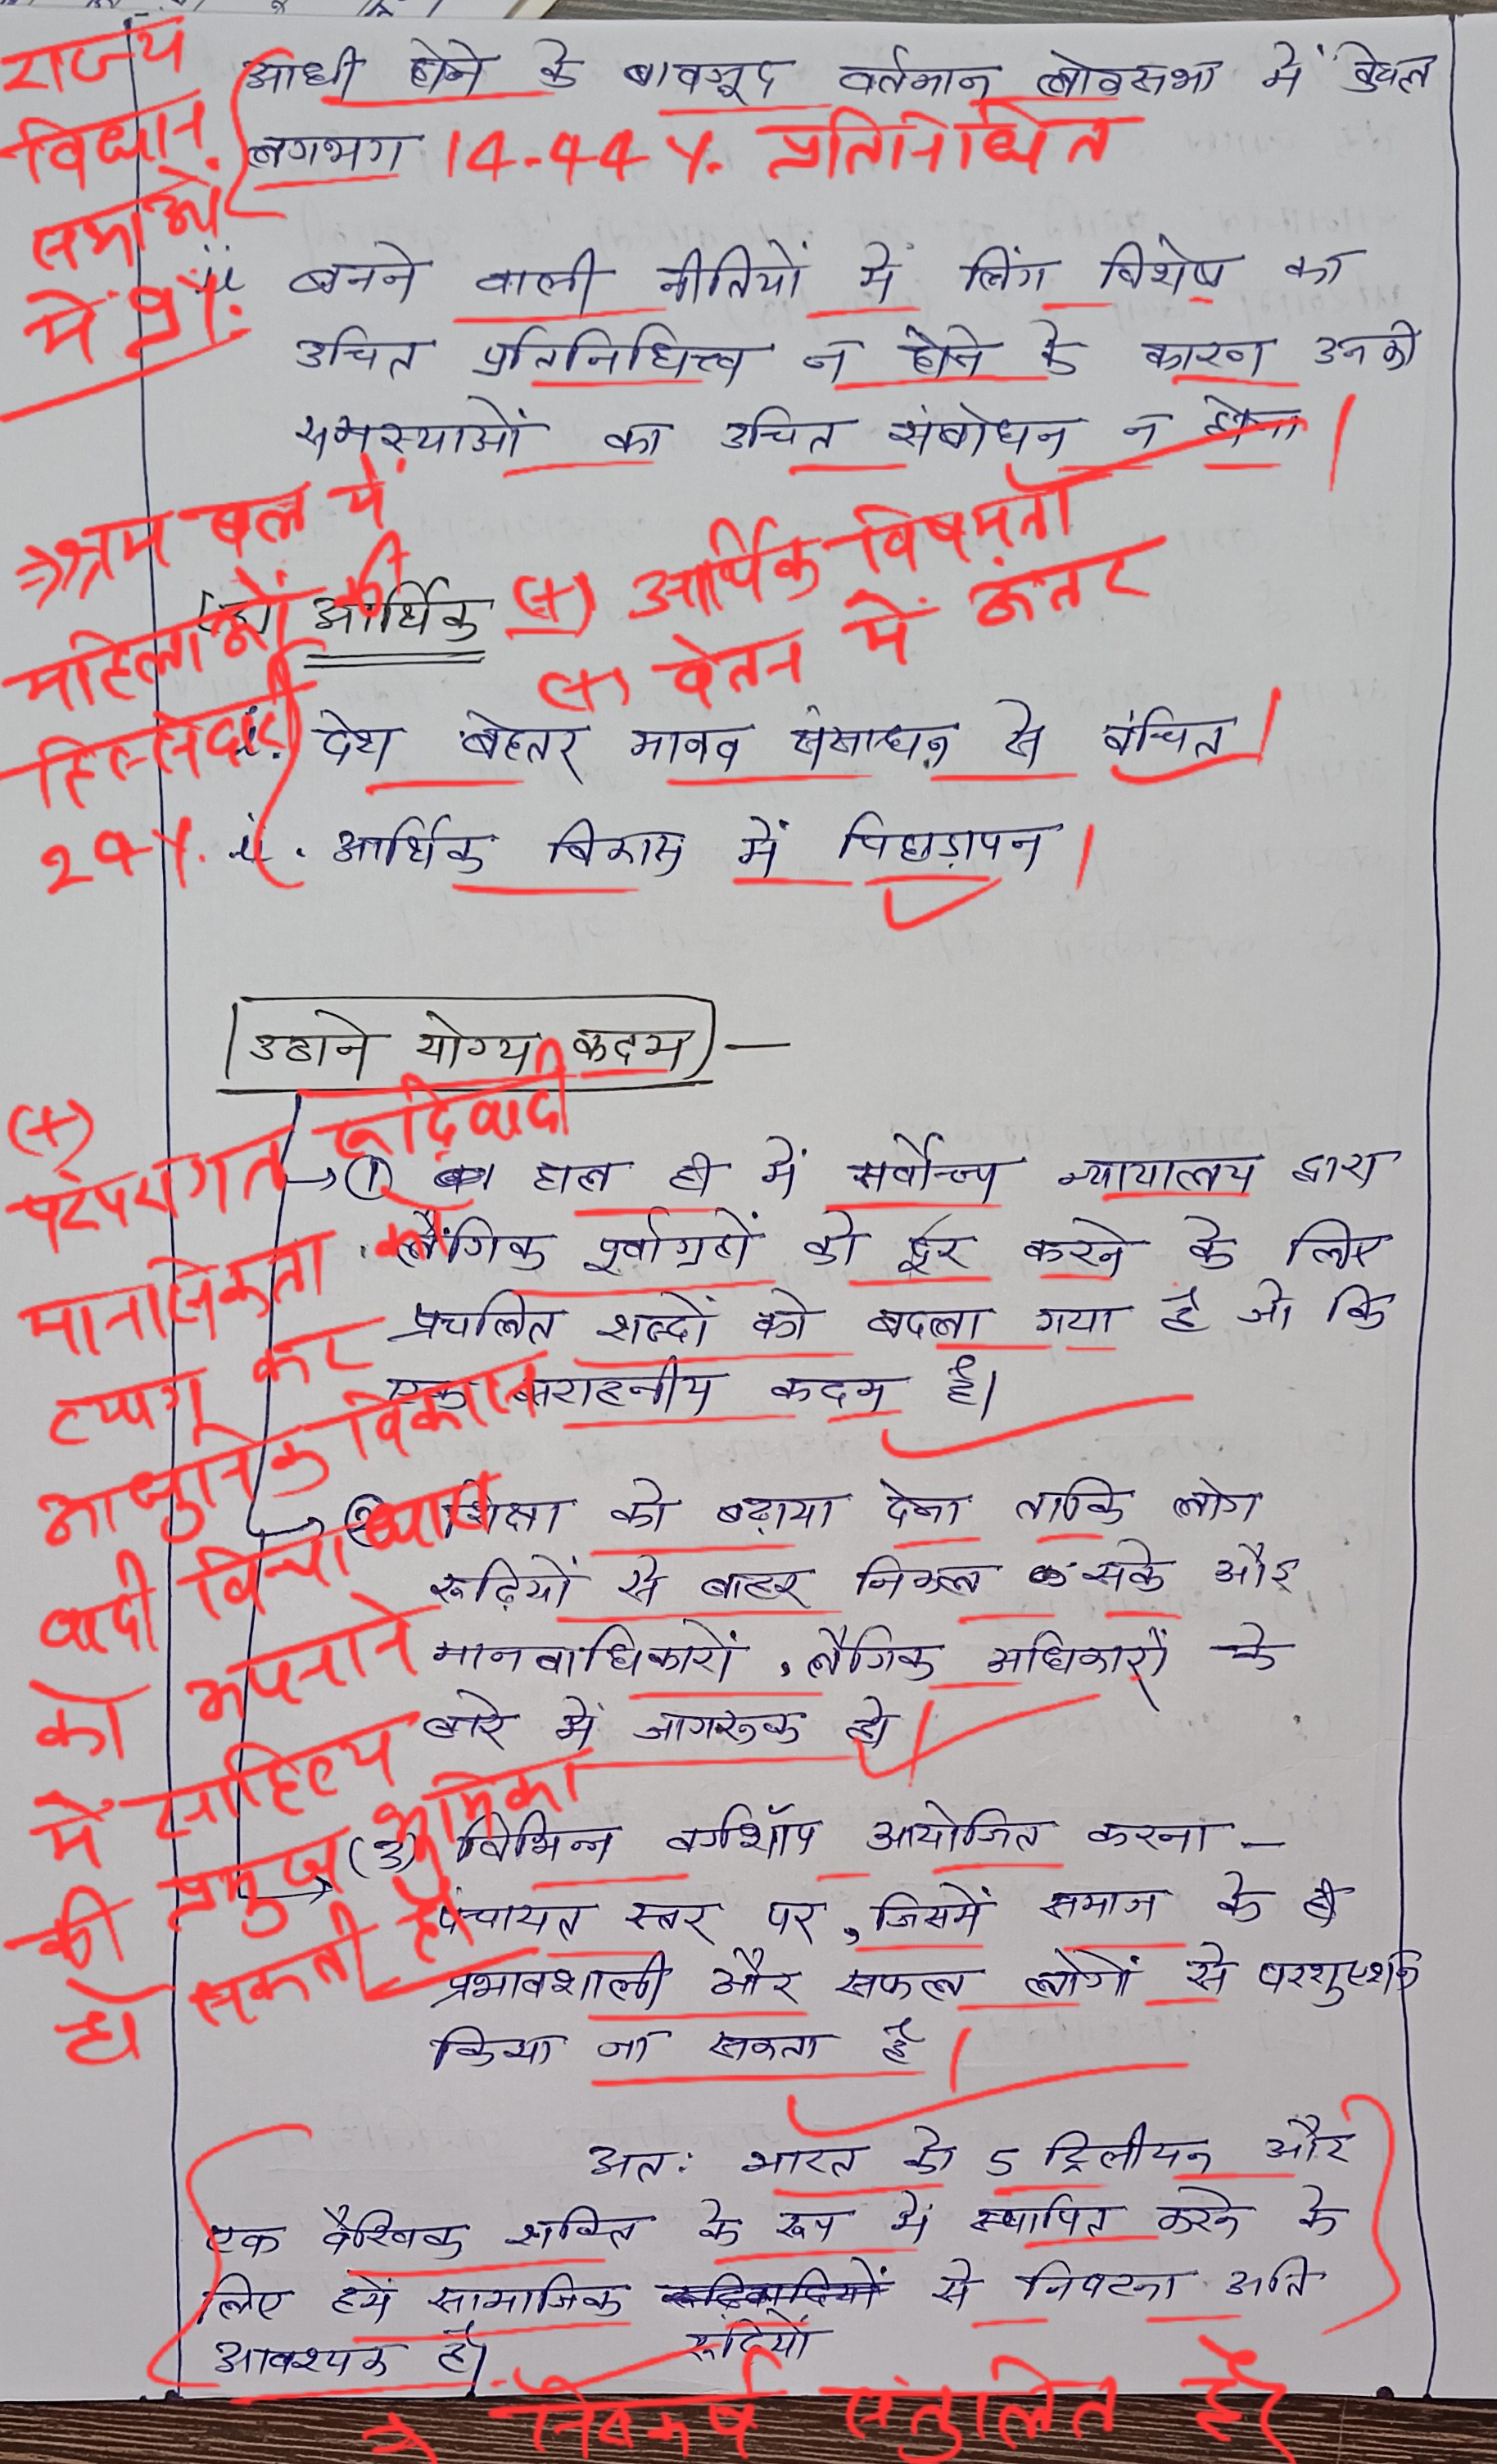 राज्य
विधान
सभाओं
में 9%.
आधी होने के बावजूद वर्तमान लोकसभा में केवल
लगभग 14.44%. प्रतिनिधित्व
ii बनने वाली नीतियों में लिंग विशेष का
उचित प्रतिनिधित्त्व न होने के कारण उनकी
समस्याओं का उचित संबोधन न होना।
→ श्रम बल में
महिलाओं की
हिस्सेदारी
29%.
आर्थिक (+) आर्थिक विषमता
(+) वेतन में अंतर
i. देश बेहतर मानव संसाधन से वंचित।
ii. आर्थिक विकास में पिछड़ापन।
उठाने योग्य कदम —
(+)
परंपरागत रूढ़िवादी
मानसिकता को
त्याग कर
आधुनिक विकास
वादी विचारधारा
को अपनाने
में साहित्य
की प्रमुख भूमिका
हो सकती है।
→ (1) हाल ही में सर्वोच्च न्यायालय द्वारा
लैंगिक पूर्वाग्रहों को दूर करने के लिए
प्रचलित शब्दों को बदला गया है जो कि
एक सराहनीय कदम है।
→ (2) शिक्षा को बढ़ावा देना ताकि लोग
रूढ़ियों से बाहर निकल सके और
मानवाधिकारों, लैंगिक अधिकारों के
बारे में जागरूक हो।
→ (3) विभिन्न वर्कशॉप आयोजित करना —
पंचायत स्तर पर, जिसमें समाज के
प्रभावशाली और सफल लोगों से
किया जा सकता है।
अतः भारत को 5 ट्रिलीयन और
एक वैश्विक शक्ति के रूप में स्थापित करने के
लिए हमें सामाजिक रूढ़ियों से निपटना अति
आवश्यक है।
→ निष्कर्ष संतुलित है।